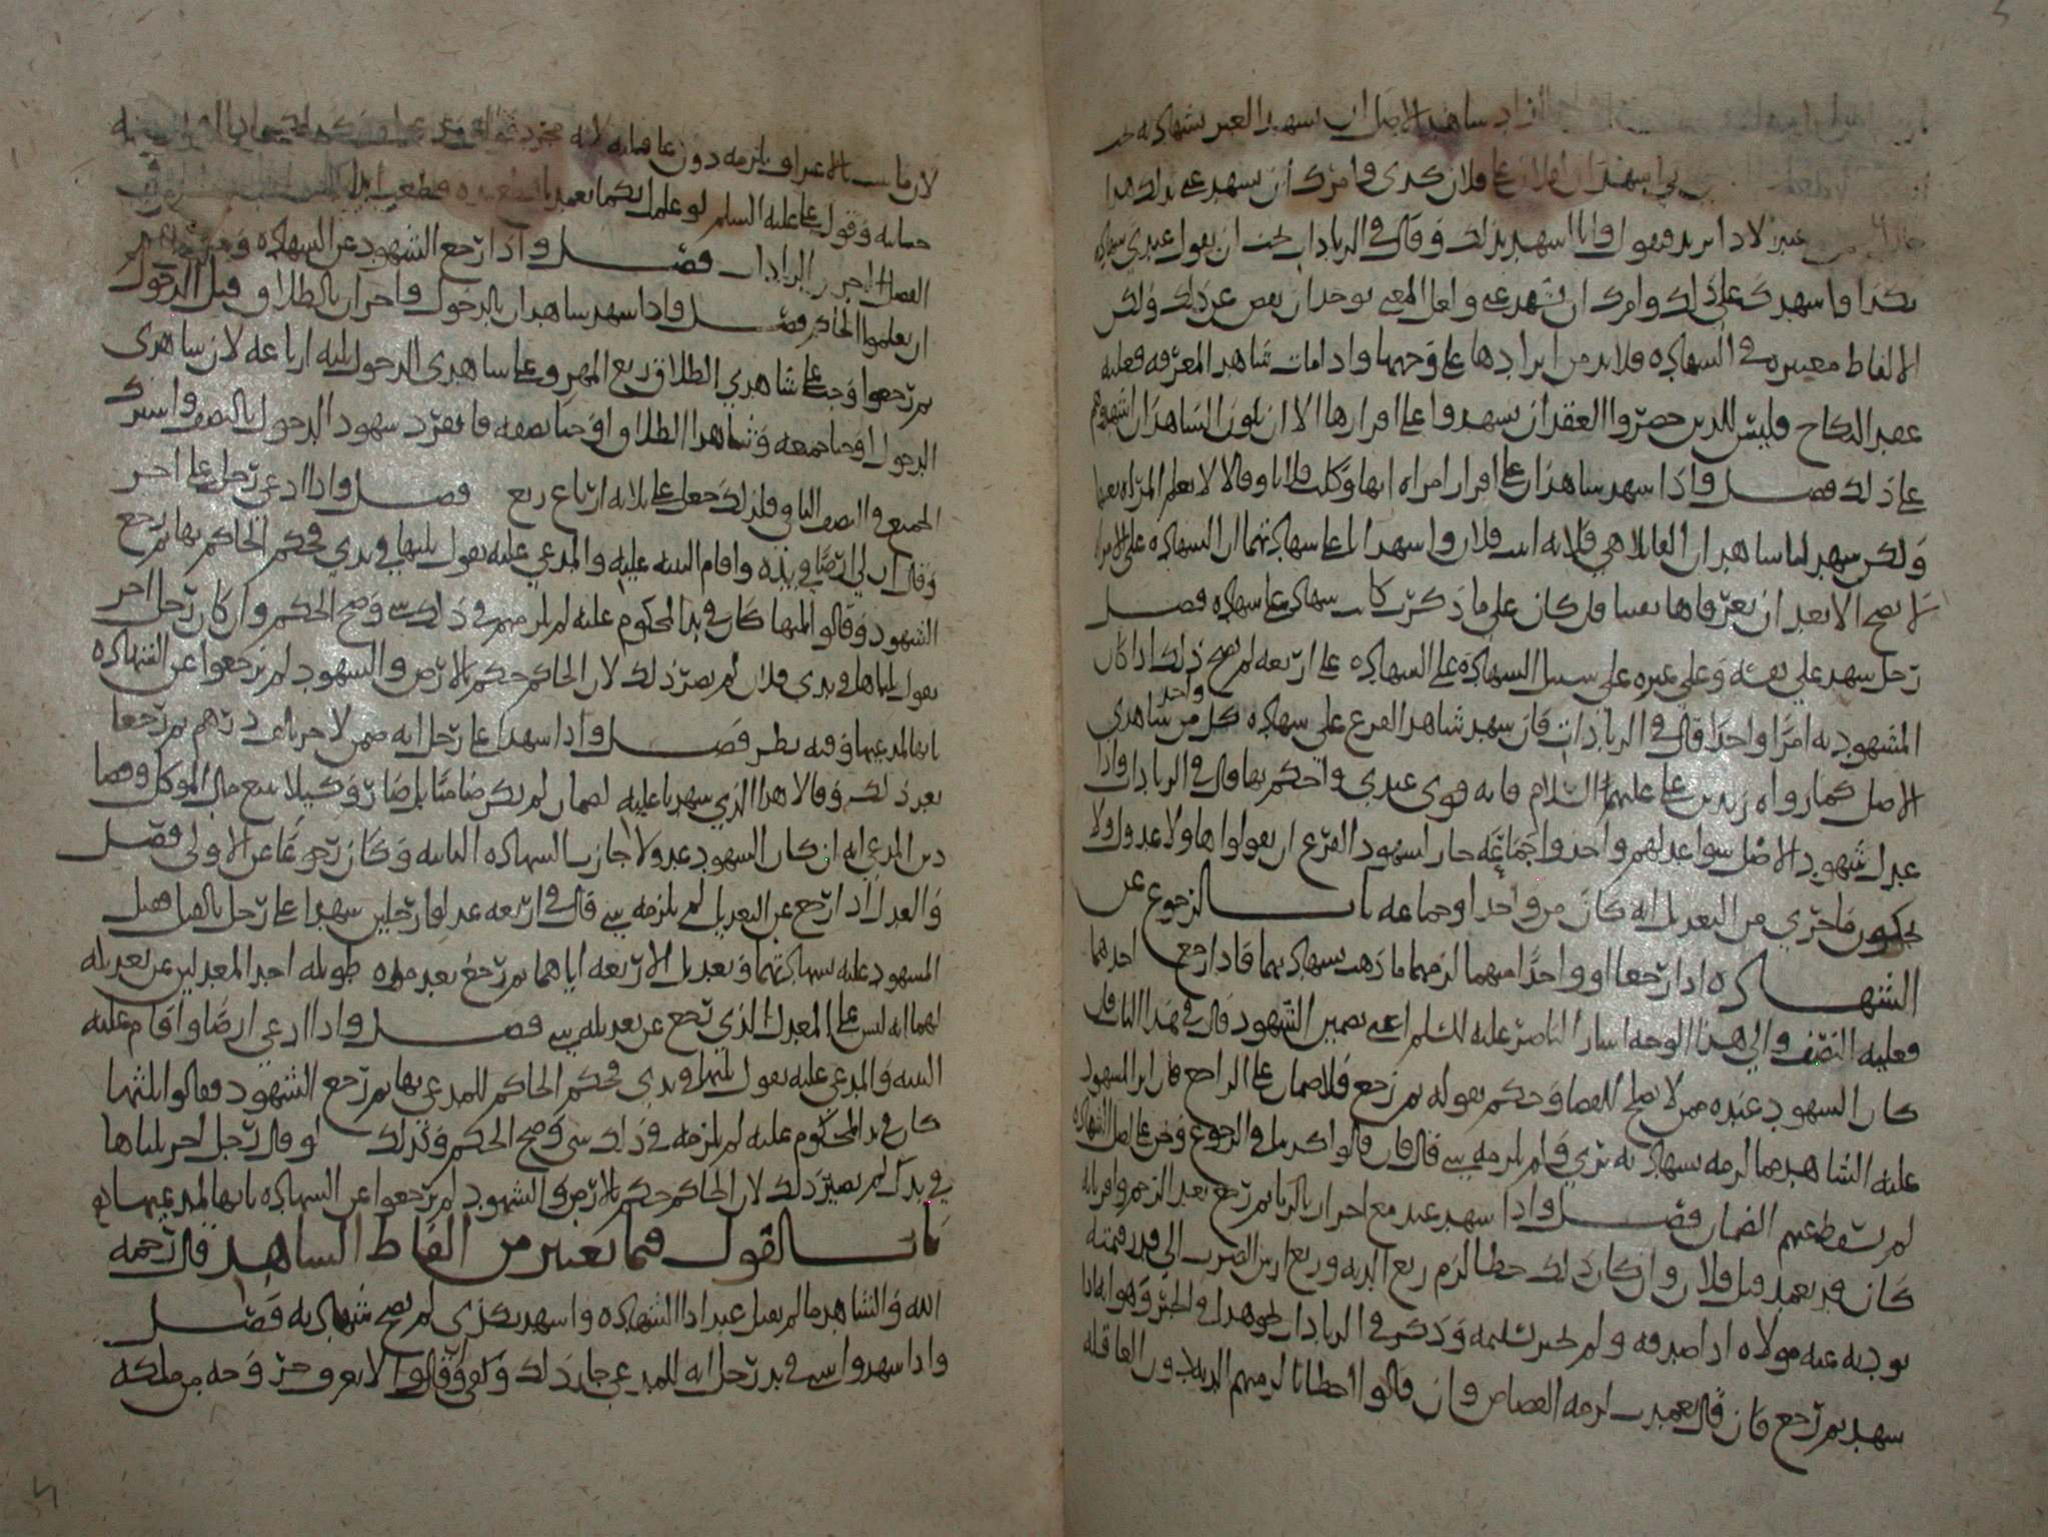 اراد شاهد الاصل ان يشهد الغير بشهادته
اشهد ان لفلان على فلان كذى وامرك ان تشهد على ذلك هذا
فيقول وانا اشهد بذلك وقال في الزيادات يجب ان يقول عندي شهادة
بكذا واشهدك على ذلك وامرك ان تشهد عني ولعل المعنى يوخذ ان بعض عن ذلك ولكن
الالفاظ معتبره في الشهاده فلا بد من ايرادها على وجهها واذا مات شاهد المعرفه فعليه
عقد النكاح فليس للذين حضروا العقد ان يشهدوا على اقرارها الا ان يكون الشاهدان اشهدوهم
على ذلك فصل واذا شهد شاهدان على اقرار امراه انها وكلت فلانا وقالا لا نعلم المراه بعينها
ولكن شهد لنا شاهدان ان القائلة هي فلانه ابنت فلان واشهدانا على شهادتهما ان الشهاده على الامراه
لا تصح الا بعد ان يعرفاها بعينها فان كان على ما ذكر كانت شهاده على شهاده فصل
رجل شهد على نفسه وعلى غيره على سبيل الشهاده على الشهاده على اربعه لم يصح ذلك اذا كان
المشهود به امرا واحدا قال في الزيادات فان شهد شاهدا الفرع على شهاده كل واحد من شاهدي
الاصل كما رواه زيد بن علي عليهما السلام فانه قوي عندي واحكم بها قال في الزيادات واذا
عدل شهود الاصل سوا عدلهم واحد او جماعه جاز لشهود الفرع ان يقولوا هاولا عدول ولا
يكون ما جرى من التعديل انه كان من واحد او جماعه باب الرجوع عن
الشهاده اذا رجعا او واحدا منهما لزمهما ما ذهب بشهادتهما فاذا رجع احدهما
فعليه النصف والى هذا الوجه اشار الناصر عليه السلم اعني تضمين الشهود قال في هذا الباب فان
كان الشهود عنده ممن لا يصلح للقضا وحكم بقوله ثم رجع فلا ضمان على الراجع فان ابرا المشهود
عليه الشاهد مما لزمه بشهادته بري ولم يلزمه شي قال فان قالوا اكذبنا في الرجوع ونحن على اصل الشهاده
لم يسقط عنهم الضمان فصل واذا شهد عبد مع احرار بالزنا ثم رجع بعد الرجم واقر بانه
كان قد تعمد قتل فلان وان كان ذلك خطا لزم ربع الديه وربع ارش الضرب الى قدر قيمته
يوديه عنه مولاه اذا صدقه ولم يختر تسليمه وذكر في الزيادات نحو هذا في الحر وهو انه اذا
شهد ثم رجع فان قال تعمدت لزمه القصاص وان قالوا اخطانا لزمهم الديه دون العاقله
لان ما يثبت بالاعتراف يلزمه دون عاقلته لانه
جنايه وقول علي عليه السلم لو علمت انكما تعمدتما
الفصل اخير الزيادات فصل واذا رجع الشهود عن الشهاده
ان يعلموا الحاكم فصل واذا شهد شاهدان بالدخول واخران بالطلاق قبل الدخول
ثم رجعوا وجب على شاهدي الطلاق ربع المهر وعلى شاهدي الدخول ثلثه ارباعه لان شاهدي
الدخول اوجبا جميعه وشاهدا الطلاق اوجبا نصفه فانفرد شهود الدخول بالنصف واشترك
الجميع في النصف الباقي فلذلك جعل على ثلاثه ارباع ربع فصل واذا ادعى رجل على اخر
وقال ان لي ارضا في يده واقام البينه عليه والمدعي عليه يقول ثلثها في يدي فحكم الحاكم بها ثم رجع
الشهود وقالوا ثلثها كان في يد المحكوم عليه لم يلزمهم في ذلك شي وصح الحكم وان كان رجل اخر
يقول ثلثاها في يدي فلان لم يضر ذلك لان الحاكم حكم بالارض والشهود لم يرجعوا عن الشهاده
بانها لمدعيها وفيه نظر فصل واذا شهدا على رجل انه ضمن لاخر مائه درهم ثم رجعا
بعد ذلك وقالا هذا الذي شهدنا عليه لضمان لم يكن ضامنا بل صار وكيلا ببيع مال الموكل وقضا
دين المدعي انه ان كان الشهود عدولا جازت الشهاده الثانيه وكان رجوعا عن الاولى فصل
والعدل اذا رجع عن التعديل لم يلزمه شي قال في اربعه عدلوا رجلين شهدا على رجل بالقتل فقتل
المشهود عليه بشهادتهما وتعديل الاربعه اياهما ثم رجع بعد مده طويله احد المعدلين عن تعديله
لهما انه ليس على المعدل الذي رجع عن تعديله شي فصل واذا ادعى ارضا واقام عليه
البينه والمدعي عليه يقول ثلثها في يدي فحكم الحاكم للمدعي بها ثم رجع الشهود فقالوا ثلثها
كان في يد المحكوم عليه لم يلزمه في ذلك شي وصح الحكم وكذلك لو قال رجل اخر ثلثاها
في يدك لم يضر ذلك لان الحاكم حكم بالارض والشهود لم يرجعوا عن الشهاده بانها لمدعيها
باب القول فيما يعتبر من الفاظ الشاهد قال رحمه
الله والشاهد ما لم يقل عند ادا الشهاده واشهد بكذى لم تصح شهادته فصل
واذا شهدوا شي في يد رجل انه للمدعي جاز ذلك وكفى وقالوا لا نعرف خروجه من ملكه